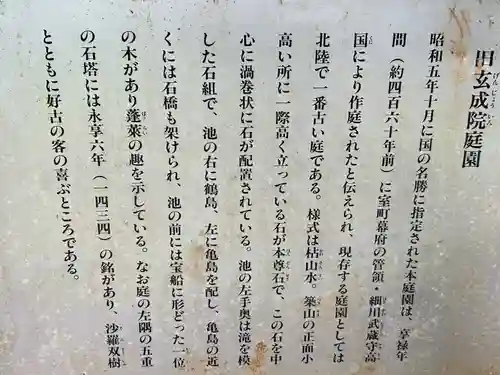 旧玄成院庭園
げんじょういん
昭和五年十月に国の名勝に指定された本庭園は、享禄年
間（約四百六十年前）に室町幕府の管領・細川武蔵守高
国により作庭されたと伝えられ、現存する庭園としては
北陸で一番古い庭である。様式は枯山水。築山の正面小
高い所に一際高く立っている石が本尊石で、この石を中
心に渦巻状に石が配置されている。池の左手奥は滝を模
した石組で、池の右に鶴島、左に亀島を配し、亀島の近
くには石橋も架けられ、池の前には宝船に形どった一位
の木があり蓬萊の趣を示している。なお庭の左隅の五重
の石塔には永享六年（一四三四）の銘があり、沙羅双樹
とともに好古の客の喜ぶところである。